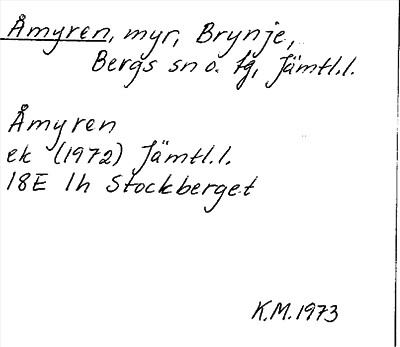 Åmyren, myr, Brynje,
Bergs sn o. tg, Jämtl.l.
Åmyren
ek (1972) Jämtl.l.
18E 1h Stockberget
K.M. 1973